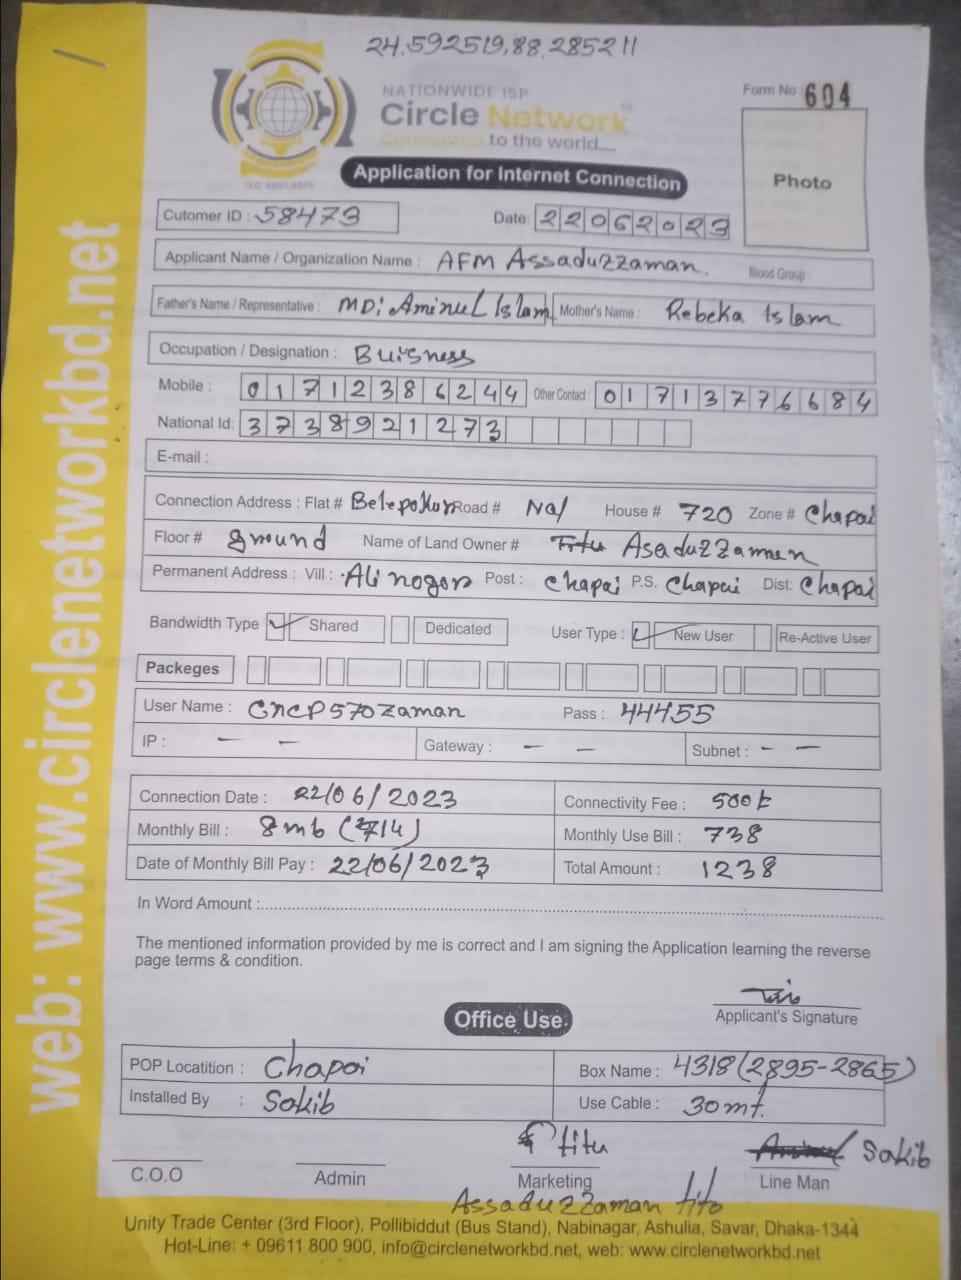 24.592519,88.285211
NATIONWIDE ISP
Circle Network
Connected to the world.....
ISO 9001:2015
Form No 604
Photo
Application for Internet Connection
Cutomer ID : 58473 Date: 22062023
Applicant Name / Organization Name : AFM Assaduzzaman. Blood Group
Father's Name / Representative : MD: Aminul Islam Mother's Name : Rebeka Islam
Occupation / Designation : Buisness
Mobile : 01712386244 Other Contact : 01713776684
National Id: 3738921273
E-mail :
Connection Address : Flat # Belepokur Road # Na/ House # 720 Zone # Chapai
Floor # ground Name of Land Owner # Asaduzzamen
Permanent Address : Vill : Ali nogor Post : Chapai P.S. Chapai Dist: Chapai
Bandwidth Type Shared Dedicated User Type : New User Re-Active User
Packeges
User Name : CNCP570zaman Pass : 44455
IP : - - Gateway : - - Subnet : - -
Connection Date : 22/06/2023 Connectivity Fee : 500t
Monthly Bill : 8mb (714) Monthly Use Bill : 738
Date of Monthly Bill Pay : 22/06/2023 Total Amount : 1238
In Word Amount :
The mentioned information provided by me is correct and I am signing the Application learning the reverse
page terms & condition.
Applicant's Signature
Office Use.
POP Locatition : Chapai Box Name : 4318(2895-2865)
Installed By : Sakib Use Cable : 30mt.
titu Sakib
C.O.O Admin Marketing Line Man
Assaduzzaman tito
Unity Trade Center (3rd Floor), Pollibiddut (Bus Stand), Nabinagar, Ashulia, Savar, Dhaka-1344
Hot-Line: + 09611 800 900, info@circlenetworkbd.net, web: www.circlenetworkbd.net
web: www.circlenetworkbd.net